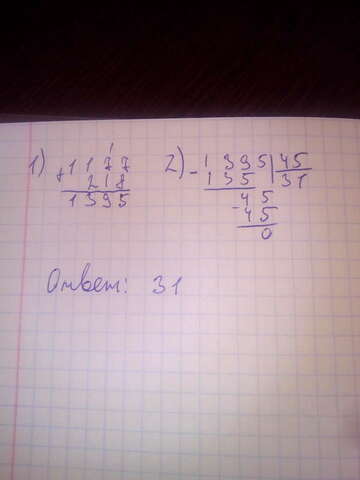 1) +1177
218
1395
2) -1395|45
135 31
-45
45
0
Ответ: 31